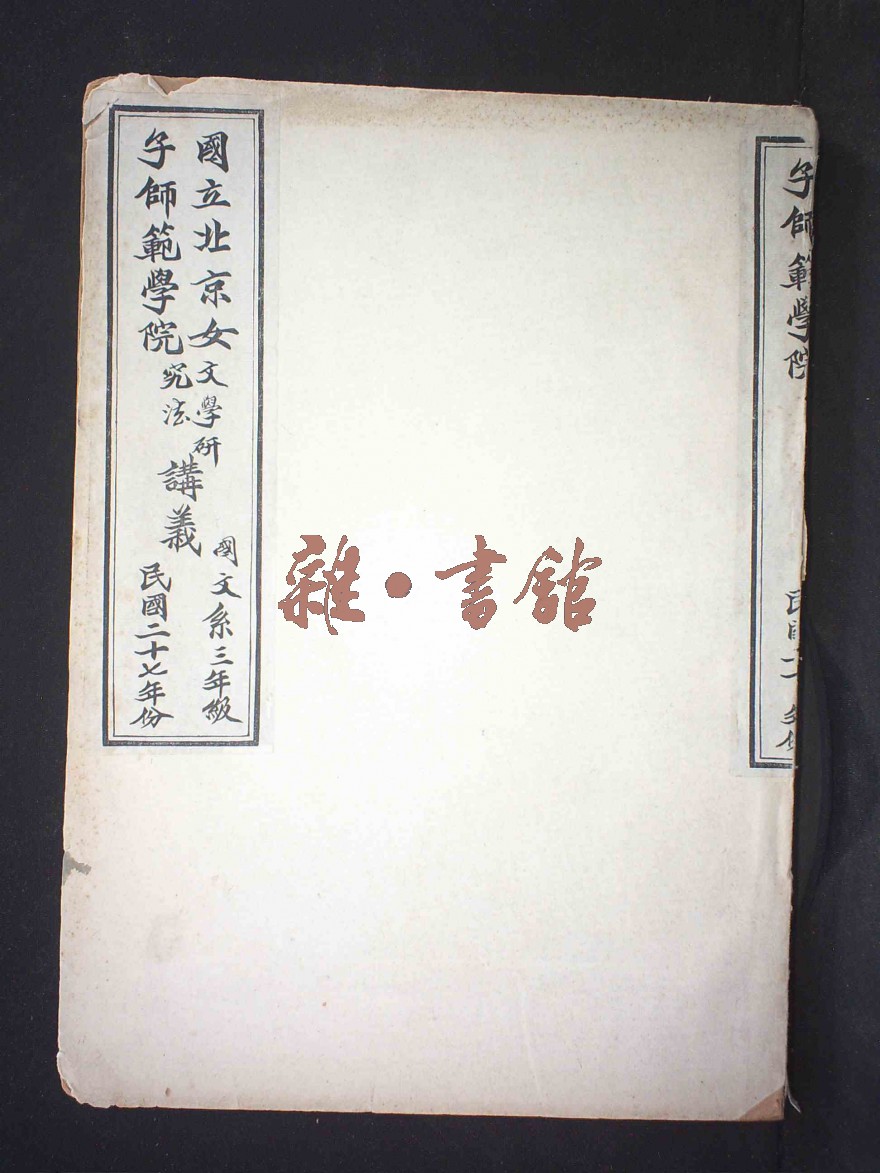 國立北京女
子師範學院
文學研
究法
講義
國文系三年級
民國二十七年份
雜·書館
子師範學院
民國二
年份